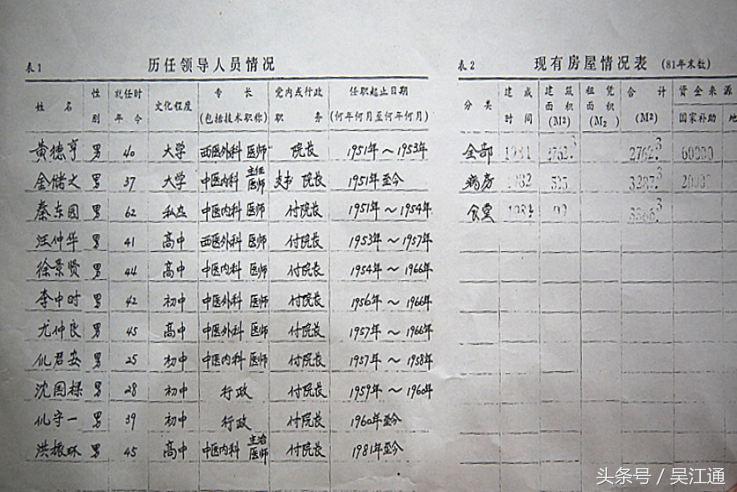 表1 历任领导人员情况
姓名 性别 就任时年令 文化程度 专长(包括技术职称)党内或行政职务 任职起止日期(何年何月至何年何月)
黄德亨 男 40 大学 西医外科 医师 院长 1951年～1953年
金储之 男 37 大学 中医内科 主任医师 支书 院长 1951年至今
秦东园 男 62 私立 中医内科 医师 付院长 1951年～1954年
汪仲华 男 41 高中 西医外科 医师 付院长 1953年～1957年
徐景贤 男 44 高中 中医内科 医师 付院长 1954年～1966年
李中时 男 42 初中 中医外科 医师 付院长 1956年～1966年
尤仲良 男 45 高中 中医外科 医师 付院长 1957年～1966年
仇君安 男 25 初中 中医内科 医师 付院长 1957年～1958年
沈国樑 男 28 初中 行政 付院长 1959年～1960年
仇守一 男 39 初中 行政 付院长 1960年至今
洪振环 男 45 高中 中医内科 主治医师 付院长 1981年至今
表2 现有房屋情况表 (81年末数)
分类 建成时间 建筑面积(M²) 租凭面积(M²) 合计(M²) 资金来源 国家补助
全部 2762.3 60000
病房
食堂
头条号／吴江通